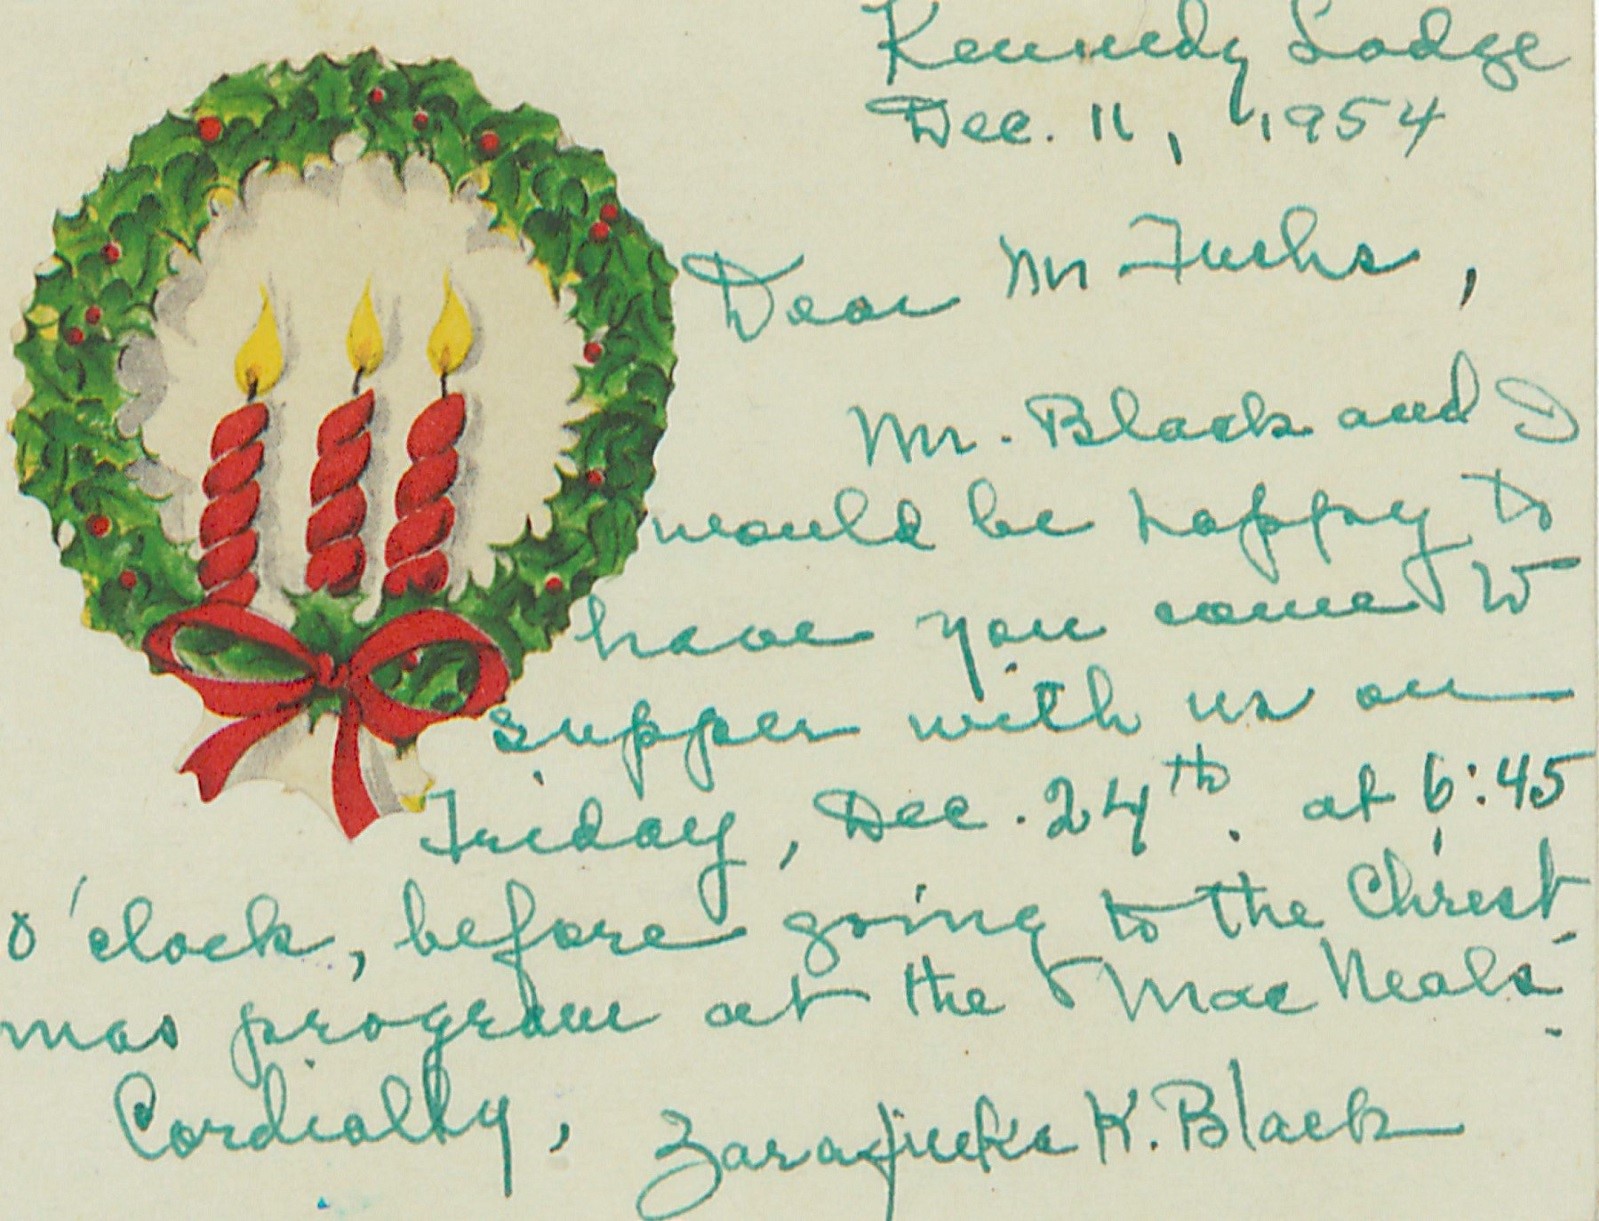 Kennedy Lodge
Dec. 11, 1954
Dear Mr Fuchs,
Mr. Black and I
would be happy to
have you come to
supper with us on
Friday, Dec. 24th. at 6:45
o'clock, before going to the Christ-
mas program at the MacNeals'.
Cordially, K. Black